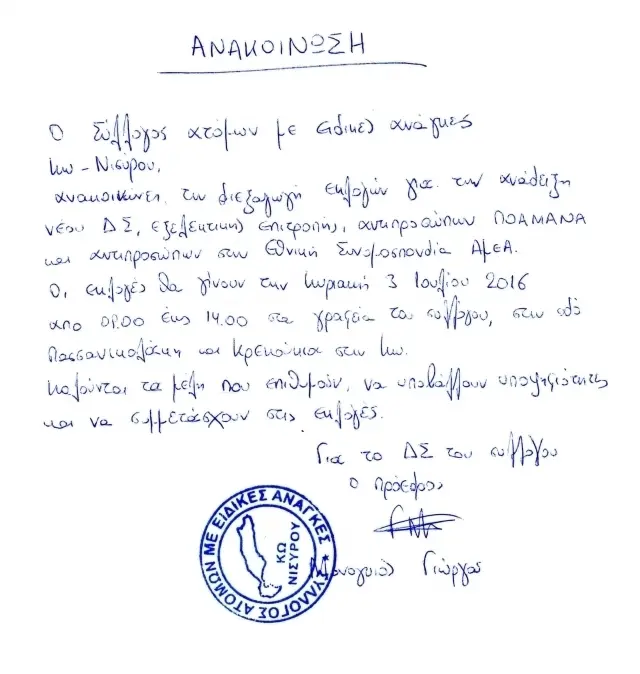 ΑΝΑΚΟΙΝΩΣΗ
Ο Σύλλογος ατόμων με ειδικές ανάγκες
Κω - Νισύρου,
ανακοινώνει την διεξαγωγή εκλογών για την ανάδειξη
νέου ΔΣ, εξελεκτικής επιτροπής, αντιπροσώπων ΠΟΑΜΑΝΑ
και αντιπροσώπων στην Εθνική Συνομοσπονδία ΑμεΑ.
Οι εκλογές θα γίνουν την Κυριακή 3 Ιουλίου 2016
από 09.00 έως 14.00 στα γραφεία του συλλόγου, στην οδό
Πασσανικολάκη και Κρεκούκια στην Κω.
Καλούνται τα μέλη που επιθυμούν, να υποβάλλουν υποψηφιότητες
και να συμμετάσχουν στις εκλογές.
Για το ΔΣ του συλλόγου
Ο πρόεδρος
Γιώργος
ΣΥΛΛΟΓΟΣ ΑΤΟΜΩΝ ΜΕ ΕΙΔΙΚΕΣ ΑΝΑΓΚΕΣ
ΚΩ
ΝΙΣΥΡΟΥ